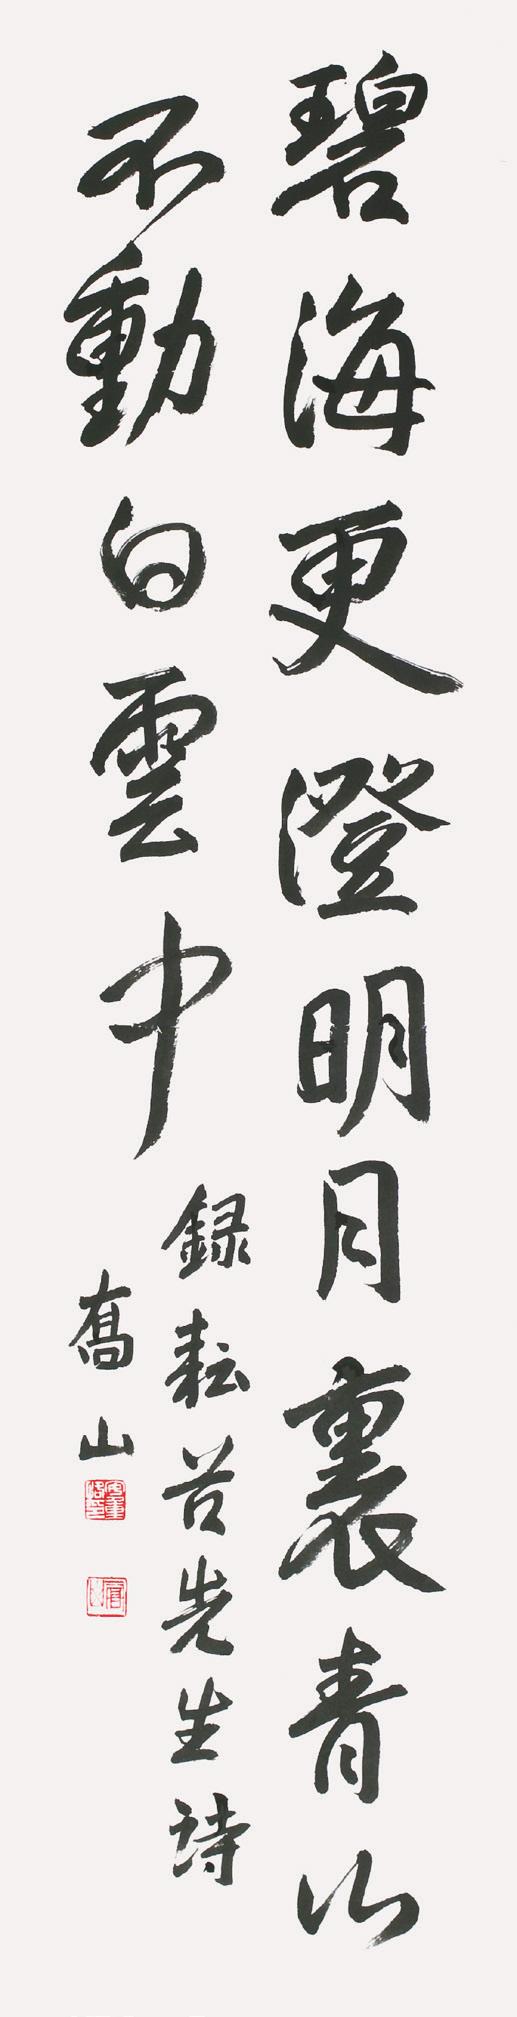 碧海更澄明月裏青山
不動白雲中
録耘谷先生詩
喬山